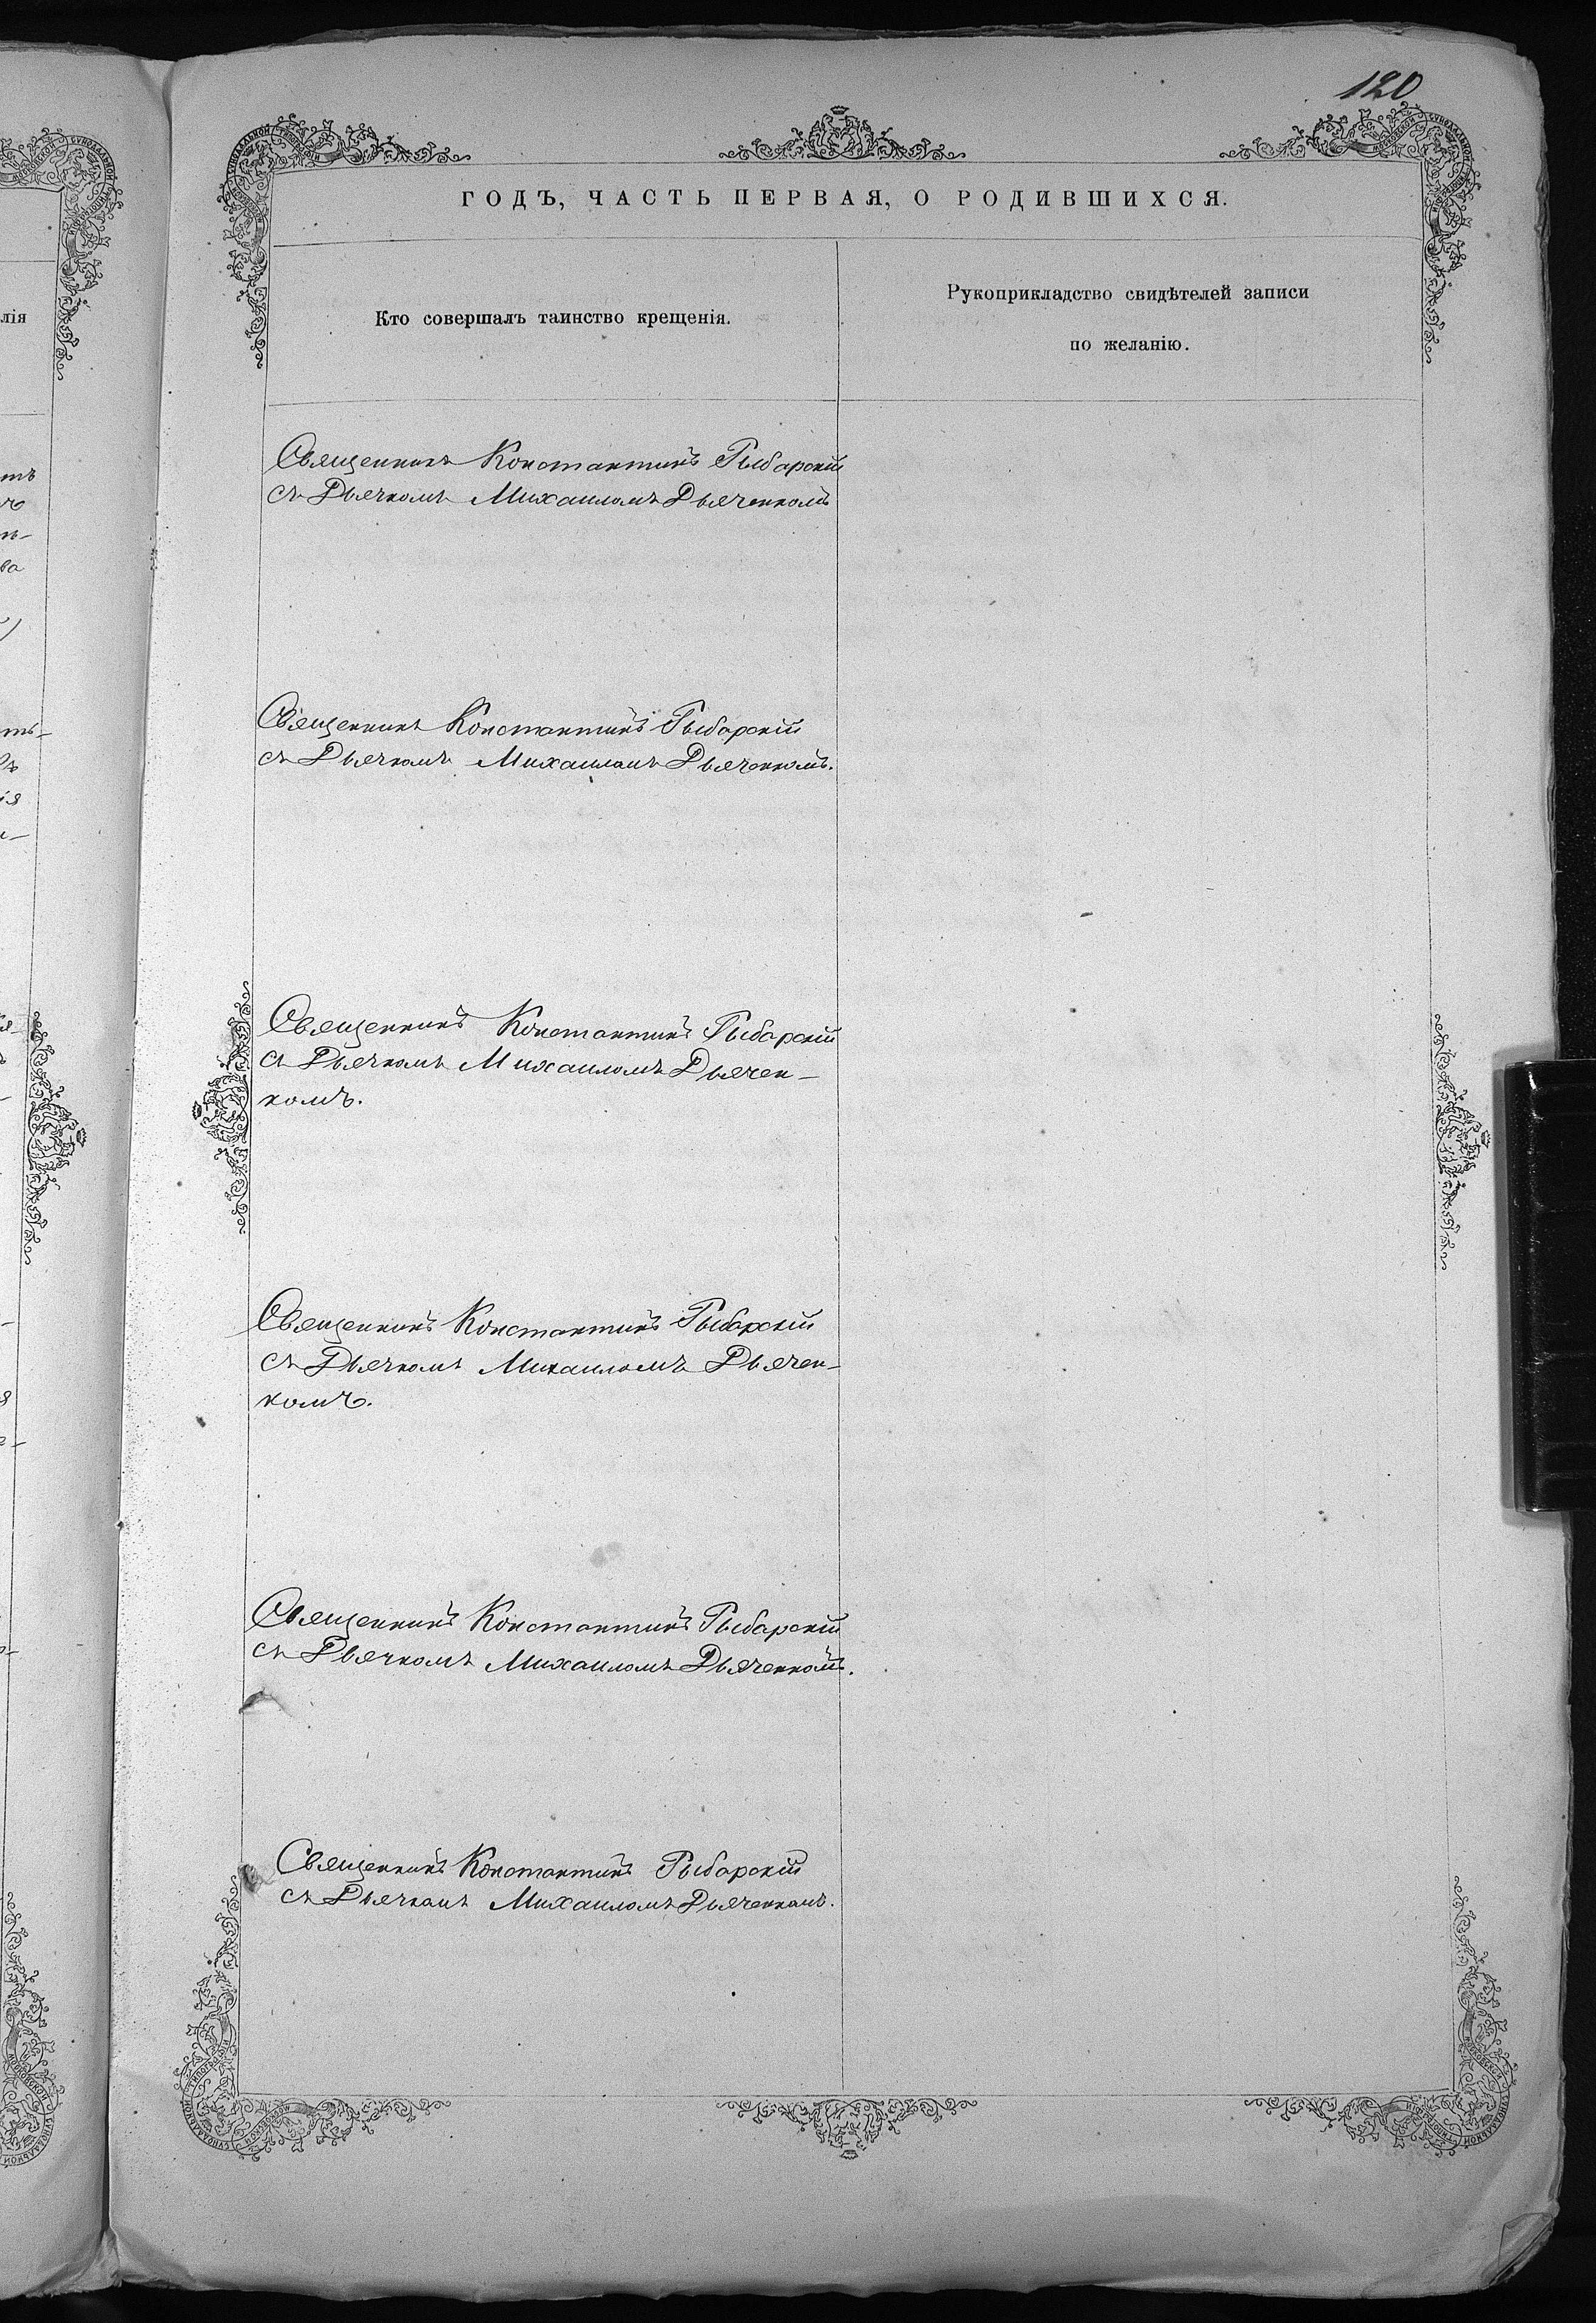 120
ГОДЪ, ЧАСТЬ ПЕРВАЯ, О РОДИВШИХСЯ.
лія
Кто совершалъ таинство крещенія.
Рукоприкладство свидѣтелей записи
по желанію.
Священникъ Константинъ Рыбарскій
съ Дьячкомъ Михаиломъ Дьяченкомъ
Священникъ Константинъ Рыбарскій
съ Дьячкомъ Михаиломъ Дьяченкомъ.
Священникъ Константинъ Рыбарскій
съ Дьячкомъ Михаиломъ Дьячен-
комъ.
Священникъ Константинъ Рыбарскій
съ Дьячкомъ Михаиломъ Дьячен-
комъ.
Священникъ Константинъ Рыбарскій
съ Дьячкомъ Михаиломъ Дьяченкомъ.
Священникъ Константинъ Рыбарскій
съ Дьячкомъ Михаиломъ Дьяченкомъ.